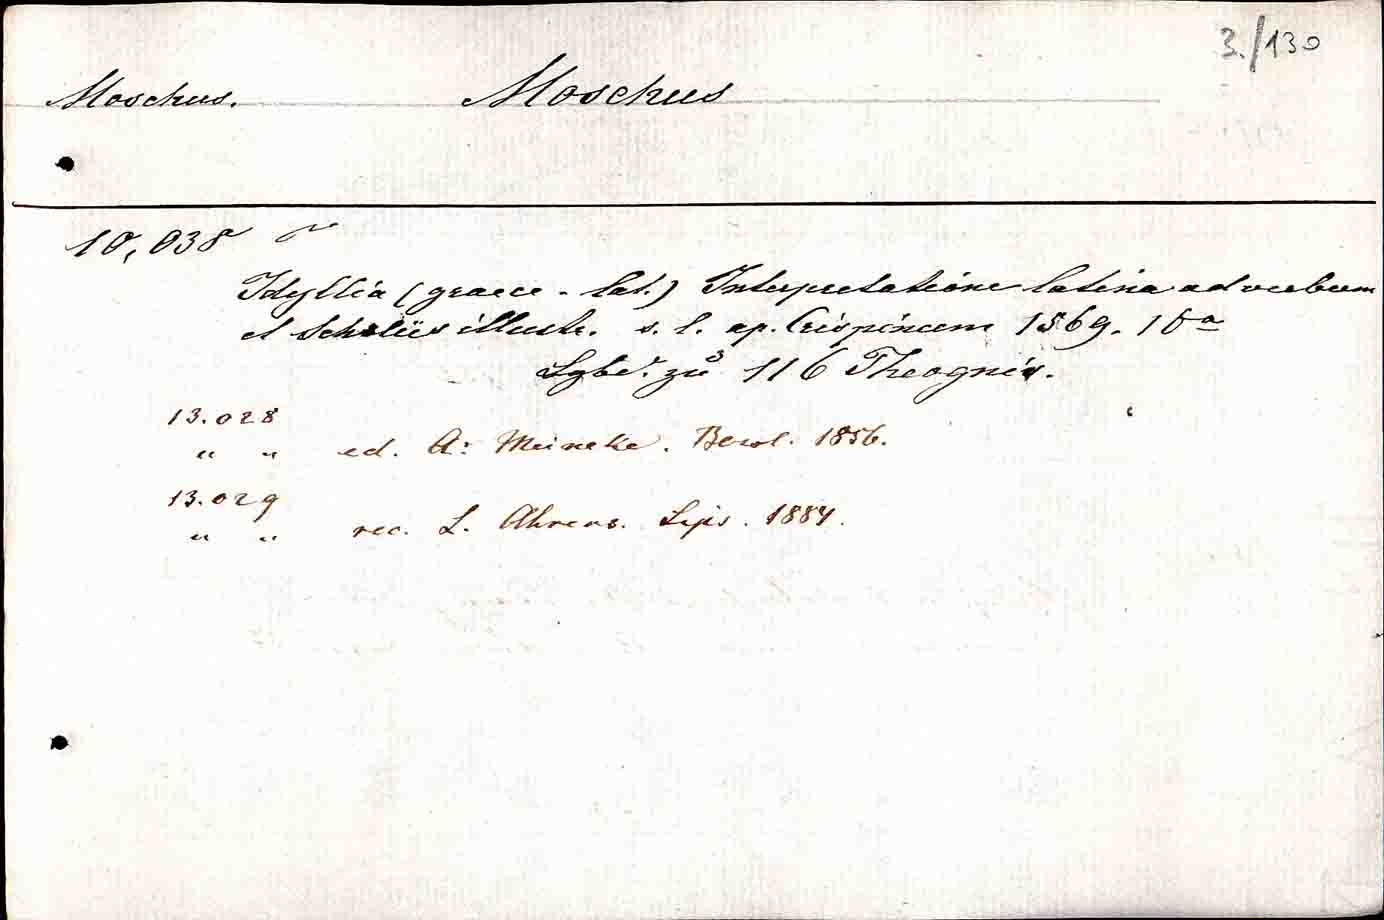 3./130
Moschus. Moschus
10,038
Idyllia (graece - lat.) Interpretatione latina ad verbum
et Scholiis illustr. s. l. ap. Crispinum 1569. 16°
Lgbd. zu 116 Theognis.
13.028
" " ed. A. Meineke. Berol. 1856.
13.029
" " rec. L. Ahrens. Lips. 1884.